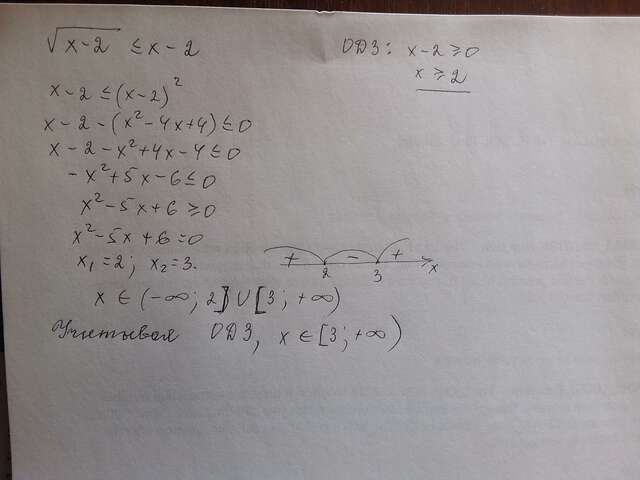 √x-2 ≤ x-2
ОДЗ: x-2 ≥ 0
x ≥ 2
x-2 ≤ (x-2)²
x-2-(x²-4x+4) ≤ 0
x-2-x²+4x-4 ≤ 0
-x²+5x-6 ≤ 0
x²-5x+6 ≥ 0
x²-5x+6 = 0
x₁=2; x₂=3.
+ - +
2 3 x
x ∈ (-∞; 2] ∪ [3; +∞)
Учитывая ОДЗ, x ∈ [3; +∞)